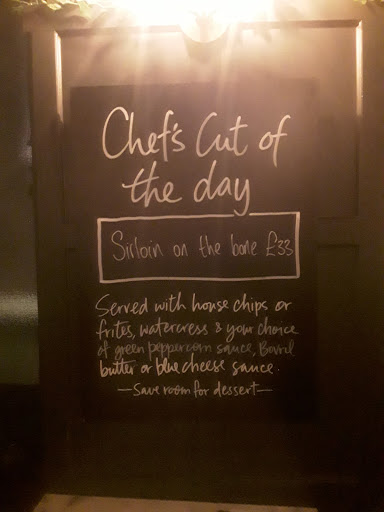 Chef's Cut of
the day
Sirloin on the bone £33
Served with house chips or
frites, watercress & your choice
of green peppercorn sauce, Bovril
butter or blue cheese sauce.
—Save room for dessert—